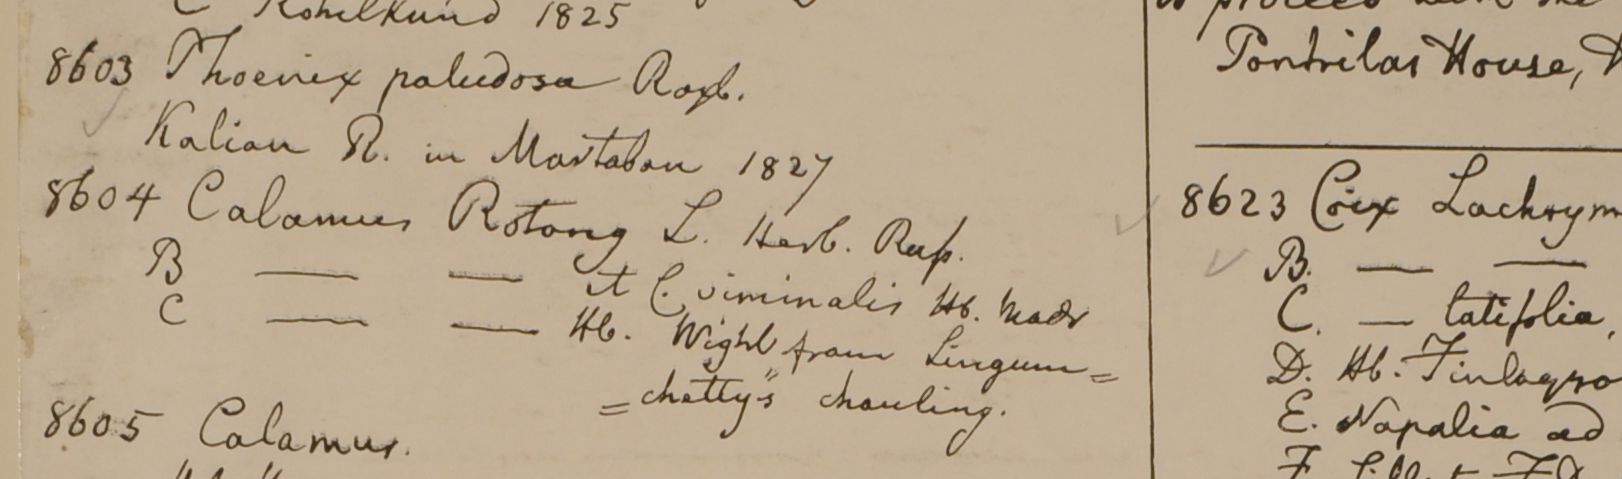 C Rohilkund 1825
8603 Phoenix paludosa Roxb.
Kalian R. in Martaban 1827
8604 Calamus Rotang L. Herb. Russ.
B — — et C. viminalis Hb. Madr
C — — Hb. Wight "from Lingum=
=chetty's" choultry.
8605 Calamus.
to proceed with the
Pontrilas House, H
8623 Coix Lachrym
B. — —
C. — latifolia,
D. Hb. Finlayso
E. Napalia ad
F.